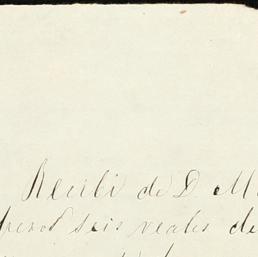 Recibi de D. M
pesos seis reales de